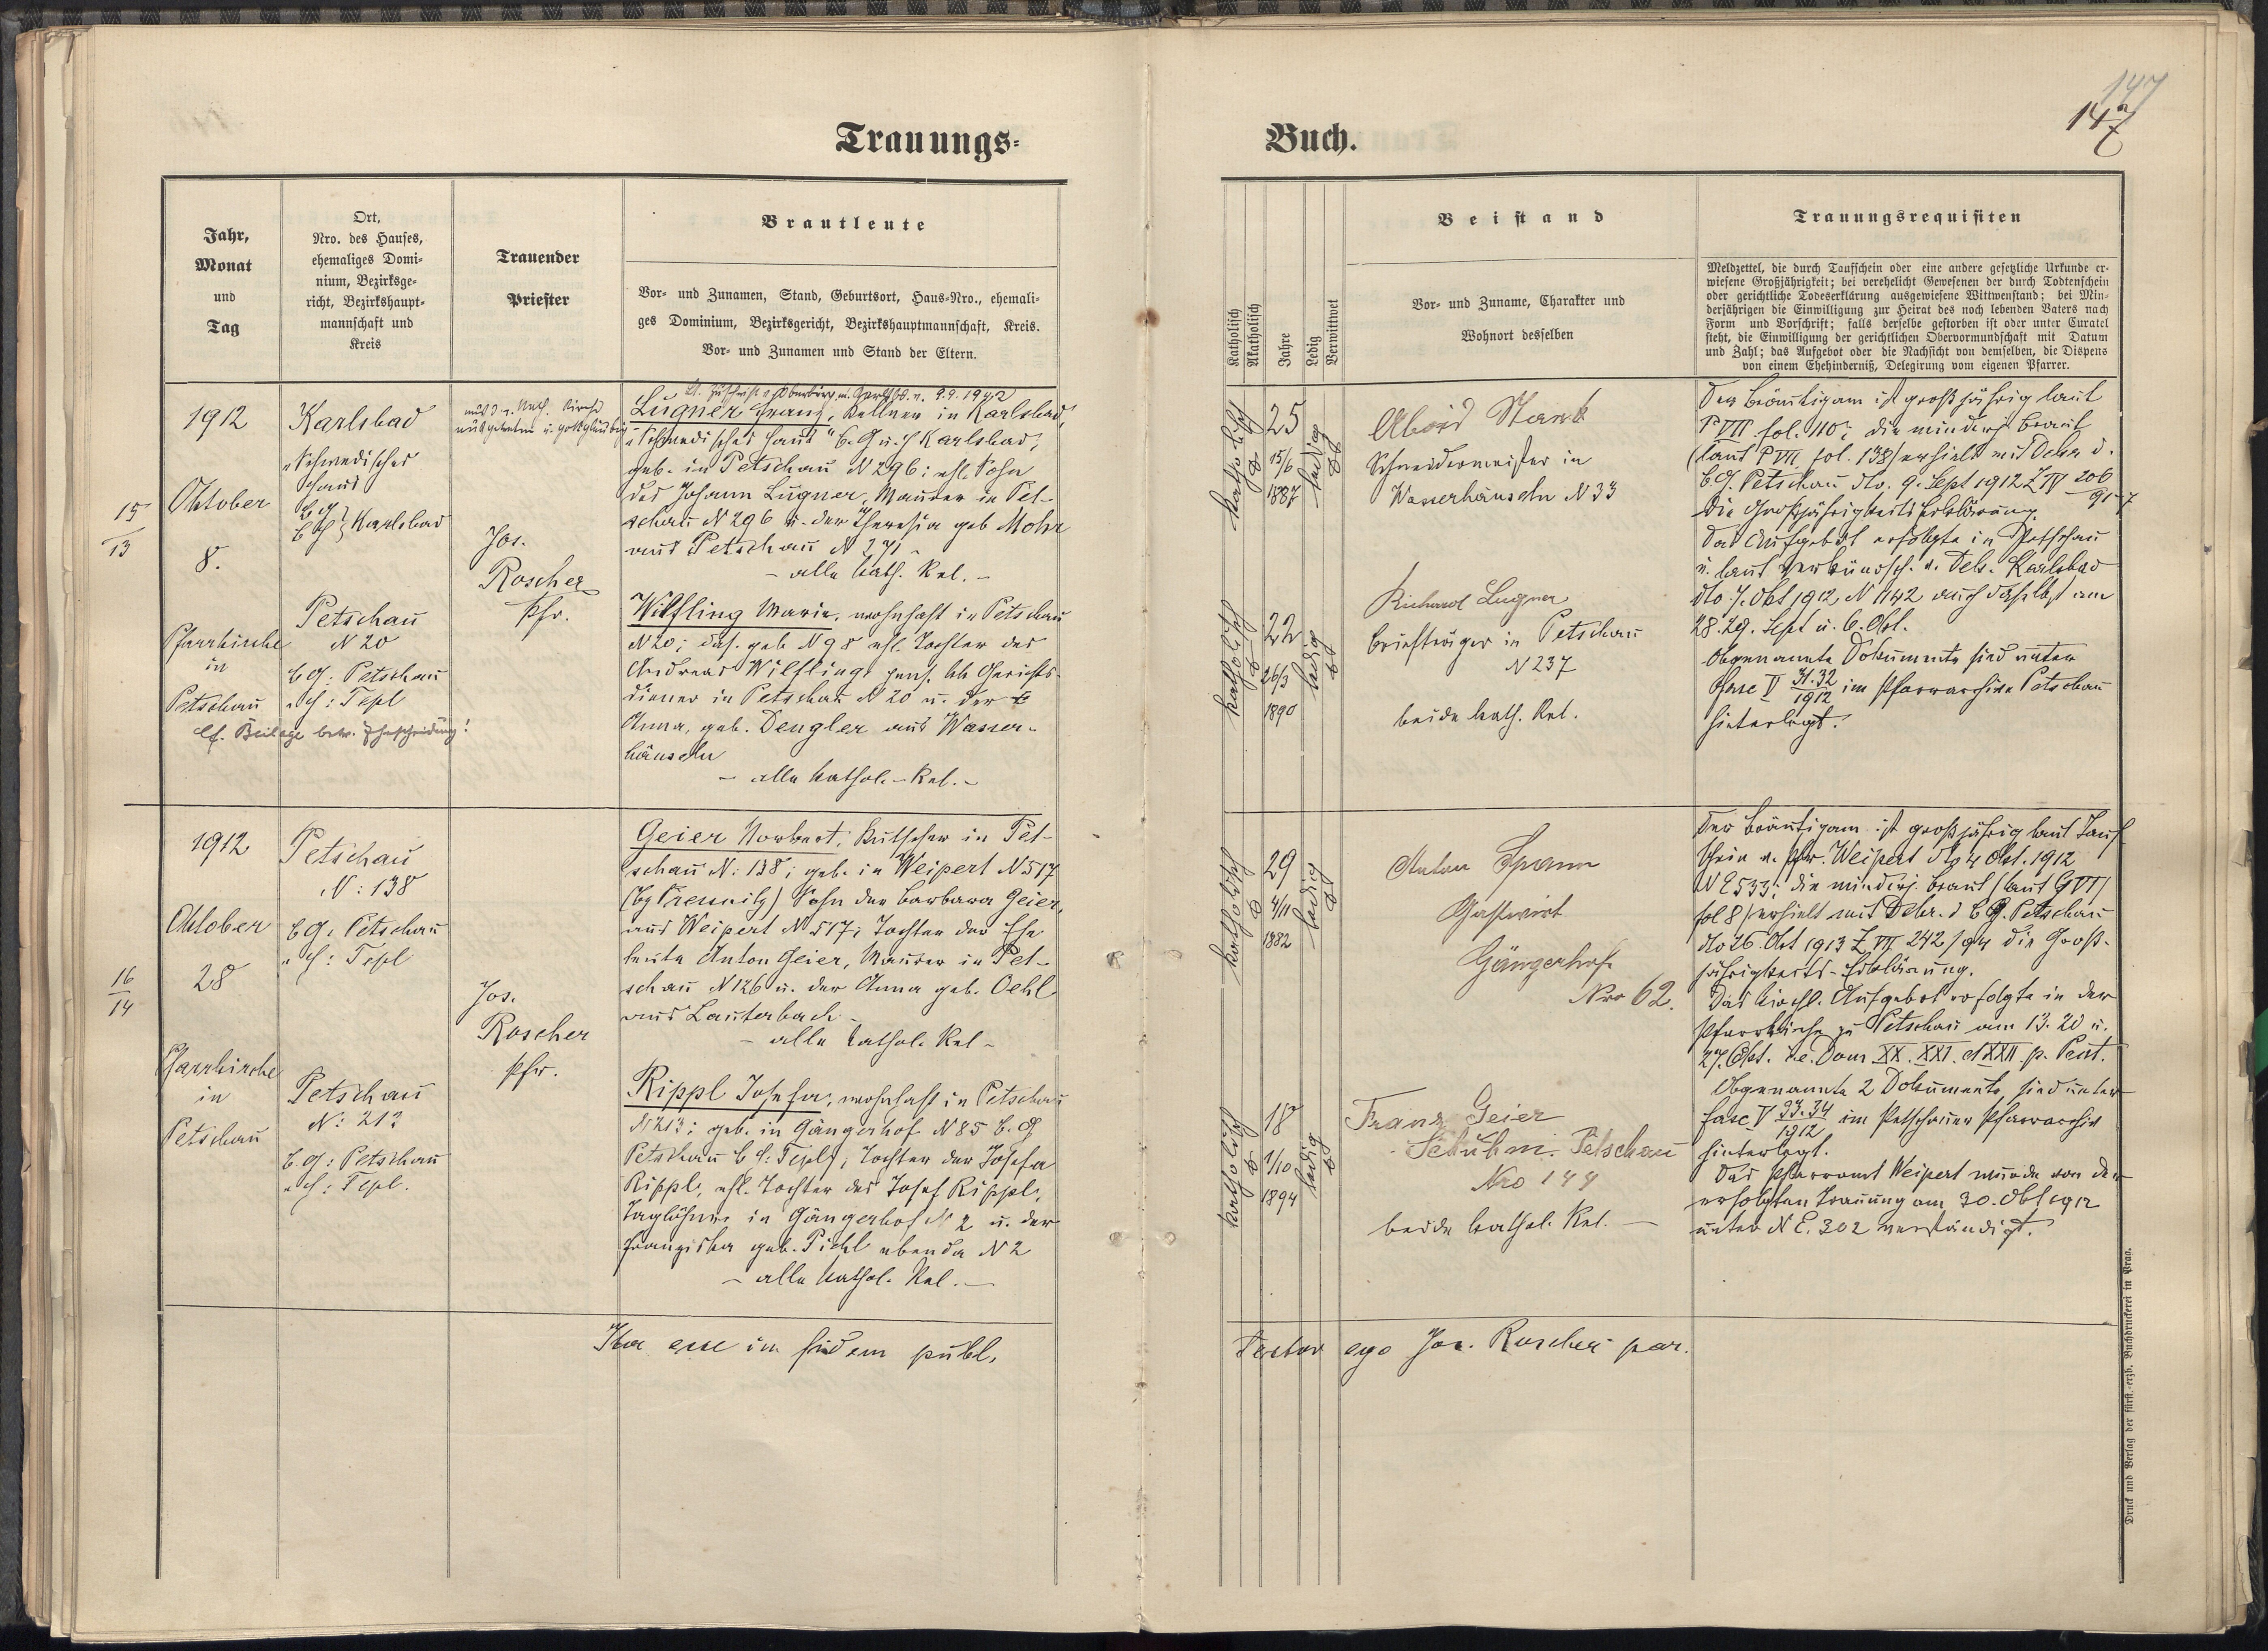 147
147
Trauungs-
Buch.
Jahr,
Monat
und
Tag
Ort,
Nro. des Hauses,
ehemaliges Domi-
nium, Bezirksge-
richt, Bezirkshaupt-
mannschaft und
Kreis
Trauender
Priester
Brautleute
Vor- und Zunamen, Stand, Geburtsort, Haus-Nro., ehemali-
ges Dominium, Bezirksgericht, Bezirkshauptmannschaft, Kreis.
Vor- und Zunamen und Stand der Eltern.
Katholisch
Akatholisch
Jahre
Ledig
Verwittwet
Beistand
Vor- und Zuname, Charakter und
Wohnort desselben
Trauungsrequisiten
Meldzettel, die durch Taufschein oder eine andere gesetzliche Urkunde er-
wiesene Großjährigkeit; bei verehelicht Gewesenen der durch Todtenschein
oder gerichtliche Todeserklärung ausgewiesene Wittwenstand; bei Min-
derjährigen die Einwilligung zur Heirat des noch lebenden Vaters nach
Form und Vorschrift; falls derselbe gestorben ist oder unter Curatel
steht, die Einwilligung der gerichtlichen Obervormundschaft mit Datum
und Zahl; das Aufgebot oder die Nachsicht von demselben, die Dispens
von einem Ehehinderniß, Delegirung vom eigenen Pfarrer.
15
13
1912
Oktober
8.
Pfarrkirche
in
Petschau
cf. Beilage betr. Ehescheidung!
Karlsbad
"Schwedisches
Haus"
b G
b H } Karlsbad
Petschau
N 20
b G: Petschau
" H: Tepl
aus d. kath. Kirche
ausgetreten u. gottgläubig
Jos.
Roscher
Pfr.
lt. Zuschrift 9.9.1942
Lugner Franz, Kellner in Karlsbad,
"Schwedisches Haus" b. G u. H Karlsbad;
geb. in Petschau N 296; ehl. Sohn
des Johann Lugner, Maurer in Pet-
schau N 296 u. der Theresia geb Mohr
aus Petschau N 271 -
- alle kath. Rel. -
Wilfling Marie, wohnhaft in Petschau
N 20; das. geb N 98 ehl. Tochter des
Andreas Wilfling, pens. kk Gerichts-
diener in Petschau N 20 u. der
Anna, geb. Dengler aus Wasser-
häuseln
- alle kathol. Rel. -
katholisch
25
15/6
1887
ledig
katholisch
22
26/3
1890
ledig
Alois Stark
Schneidermeister in
Wasserhäuseln N 33
Richard Lugner
Briefträger in Petschau
N 237
beide kath. Rel.
Der Bräutigam ist großjährig laut
P VII fol. 110; die minderj Braut
(laut P VII fol. 138) erhielt mit Dekr d.
b. G. Petschau dto. 9. Sept 1912 Z IV 206
91-7
die Großjährigkeitserklärung.
Das Aufgebot erfolgte in Petschau
u. laut Verkündsch. v. Dek. Karlsbad
dto 7. Okt 1912 N 1142 auch daselbst am
28. 29. Sept u. 6. Okt.
Obgenannte Dokumente sind unter
Fasc V 31.32
1912 im Pfarrarchive Petschau
hinterlegt.
16
14
1912
Oktober
28
Pfarrkirche
in
Petschau
Petschau
N: 138
b G: Petschau
" H: Tepl
Petschau
N: 213
b. G: Petschau
" H: Tepl.
Jos.
Roscher
Pfr.
Geier Norbert, Kutscher in Pet-
schau N: 138; geb. in Weipert N 517
(bz Pressnitz) Sohn der Barbara Geier,
aus Weipert N 517; Tochter der Ehe
leute Anton Geier, Maurer in Pet-
schau N 126 u. der Anna geb. Oehl
aus Lauterbach -
- alle kathol. Rel -
Rippl Josefa, wohnhaft in Petschau
N 213; geb. in Gängerhof N 85 b. G
Petschau b H: Tepl; Tochter der Josefa
Rippl, ehl. Tochter des Josef Rippl,
Taglöhner in Gängerhof N 2 u. der
Franziska geb. Pichl ebenda N 2
- alle kathol. Rel. -
katholisch
29
4/11
1882
ledig
katholisch
18
1/10
1894
ledig
Anton Spann
Gastwirt
Gängerhof
Nro 62.
Franz Geier
Schuhm. Petschau
Nro 144
beide kathol. Rel. -
Der Bräutigam ist großjährig laut Tauf
schein v. Pfr. Weipert dto 4 Okt. 1912
N 2533; die minderj. Braut (laut G VI)
fol 8) erhielt mit Dekr. d b G. Petschau
dto 26. Okt 1913 Z VII 242/94 die Groß-
jährigkeits-Erklärung.
Das kirchl. Aufgebot erfolgte in der
Pfarrkirche zu Petschau am 13. 20 u.
27. Okt. i.e. Dom XX. XXI. et XXII p. Pent.
Obgenannte 2 Dokumente sind unter
Fasc V 33.34
1912 im Petschauer Pfarrarchiv
hinterlegt.
Das Pfarramt Weipert wurde von der
erfolgten Trauung am 30. Okt 1912
unter N E. 302 verständigt.
Ita esse in fidem publ.
Testor ego Jos. Roscher par.
Druck und Verlag der fürst.-erzb. Buchdruckerei in Prag.